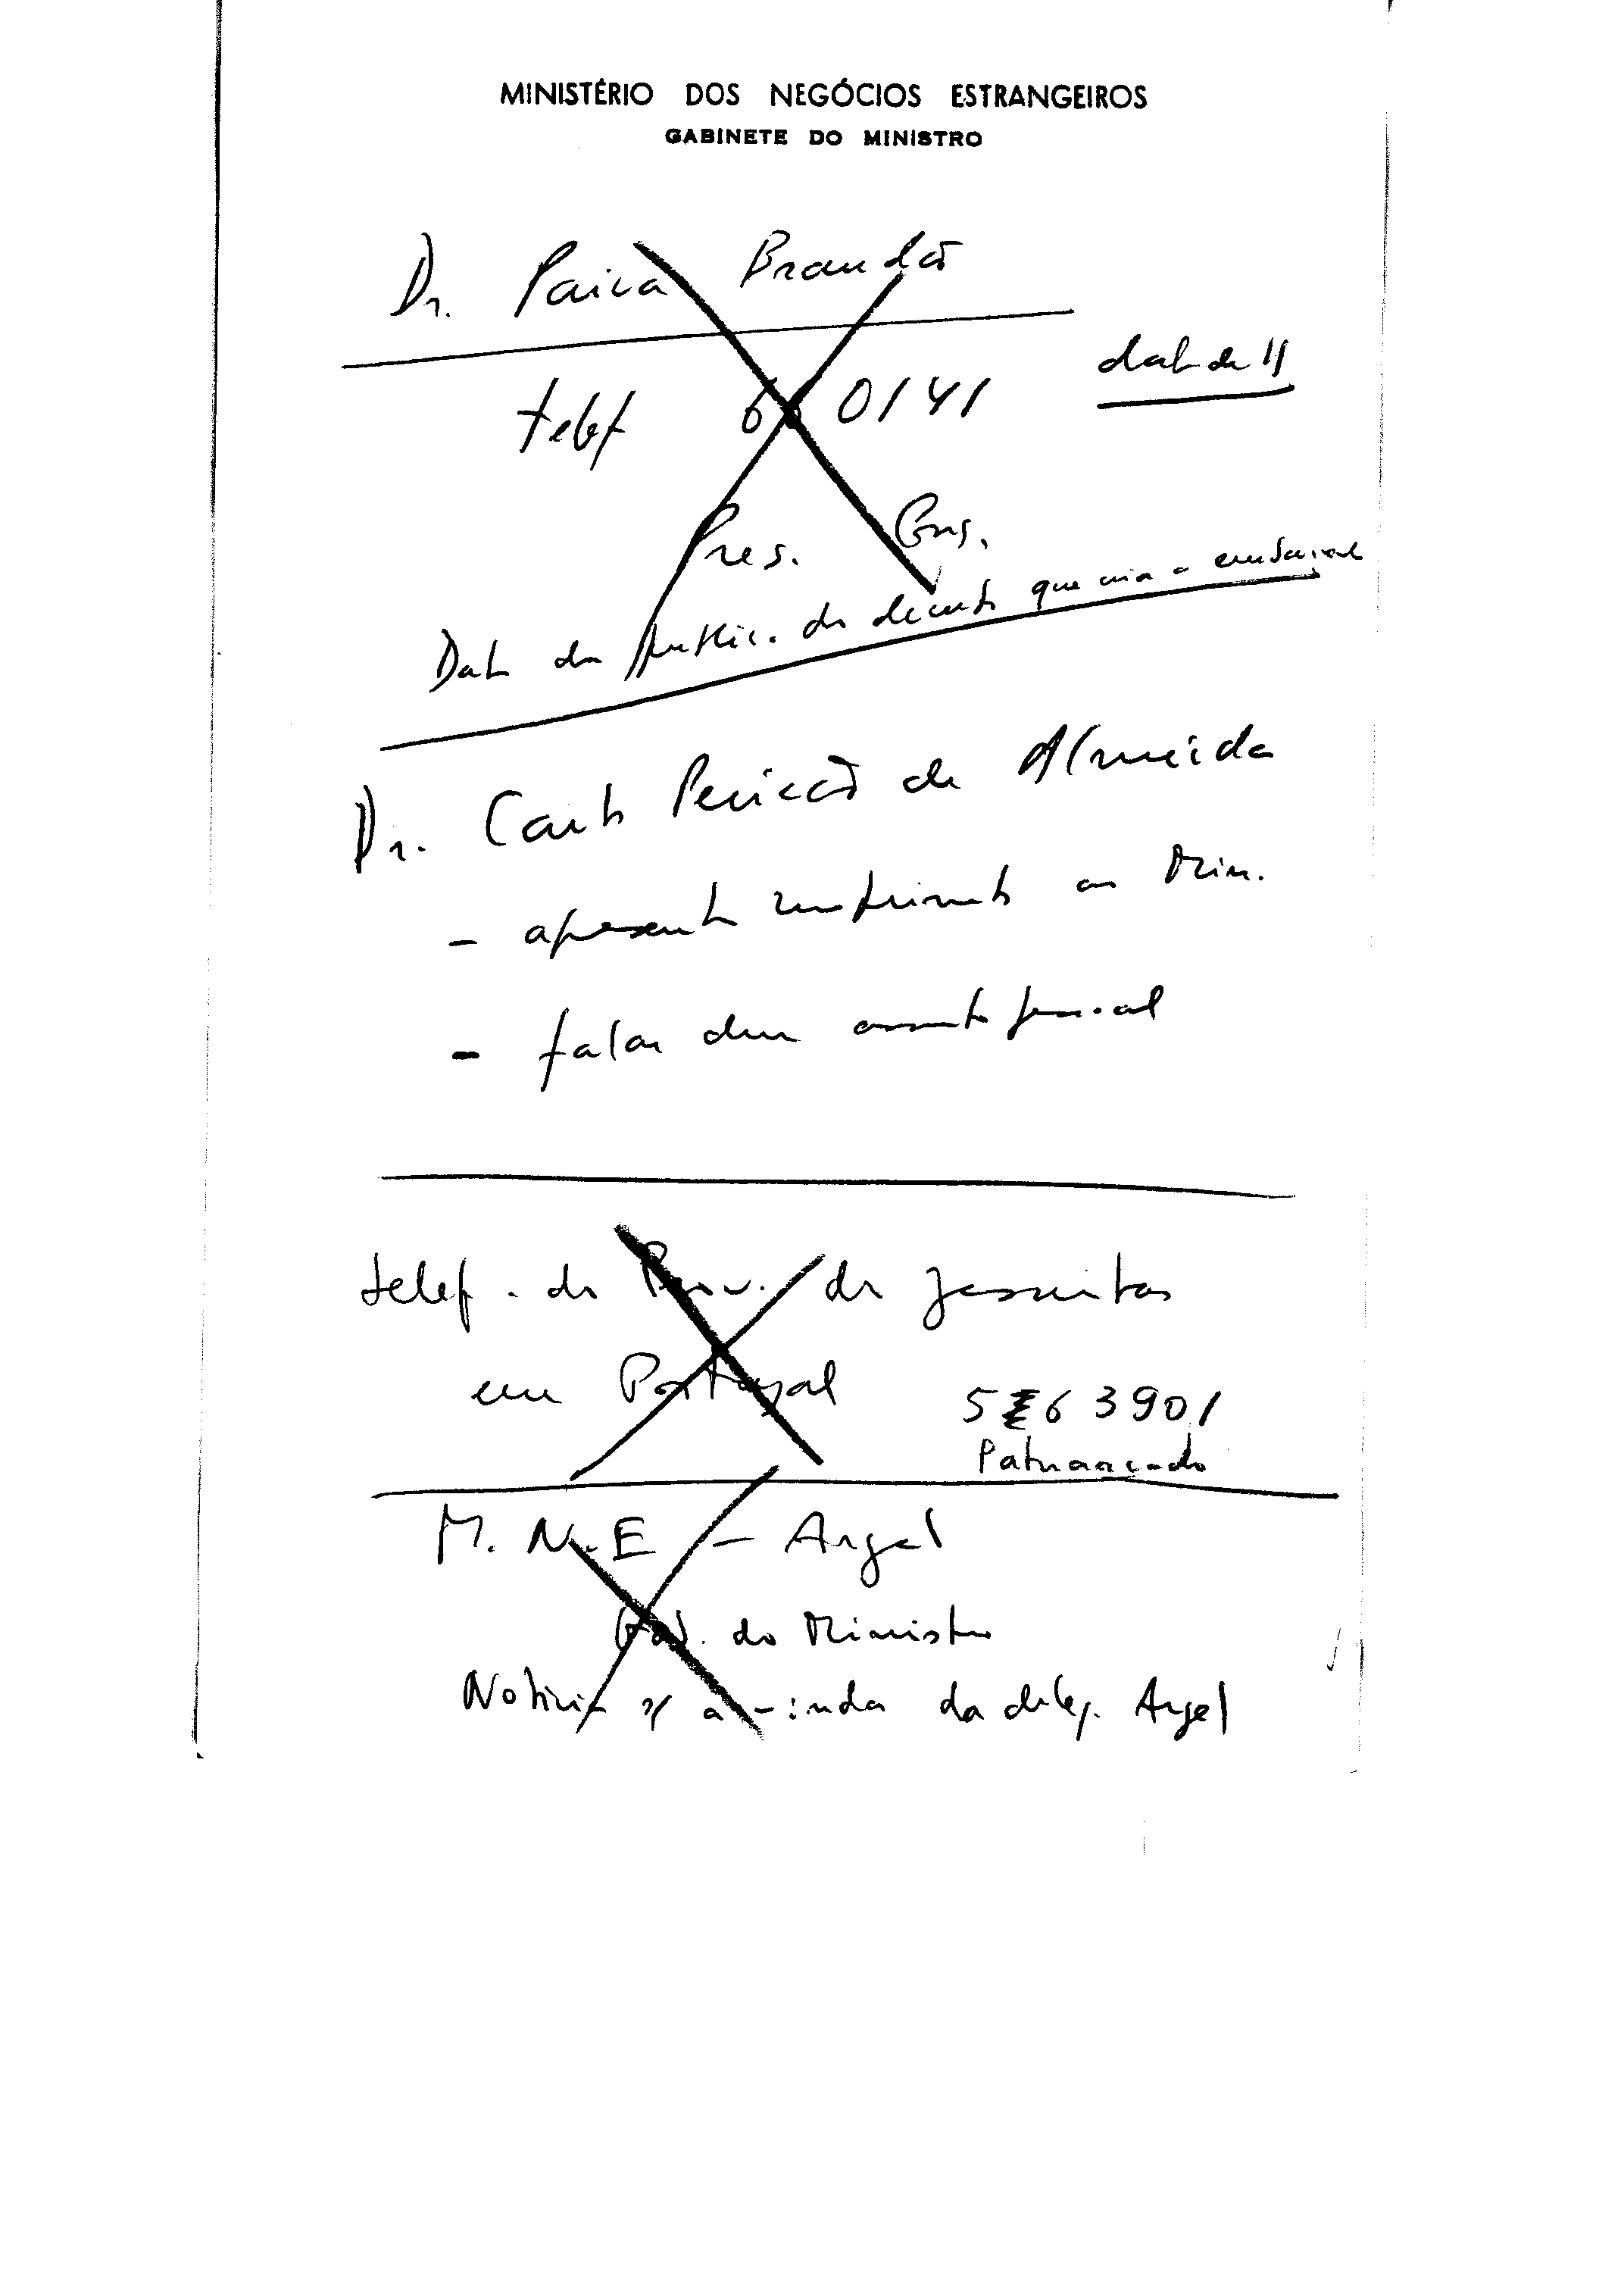 MINISTÉRIO DOS NEGÓCIOS ESTRANGEIROS
GABINETE DO MINISTRO
Dr. Paiva Brandão
telef 660141
Pres. Cons.
Data da public. do decreto que cria a embaixada
Dr. de Almeida
- apresenta cumprimentos ao Min.
- falar dum assunto pessoal
telef. do Prov. dos Jesuitas
em Portugal 5 6 3901
Patriarcado
M. N. E - Argel
Gab. do Ministro
Noticia s/ a vinda da deleg. Argel